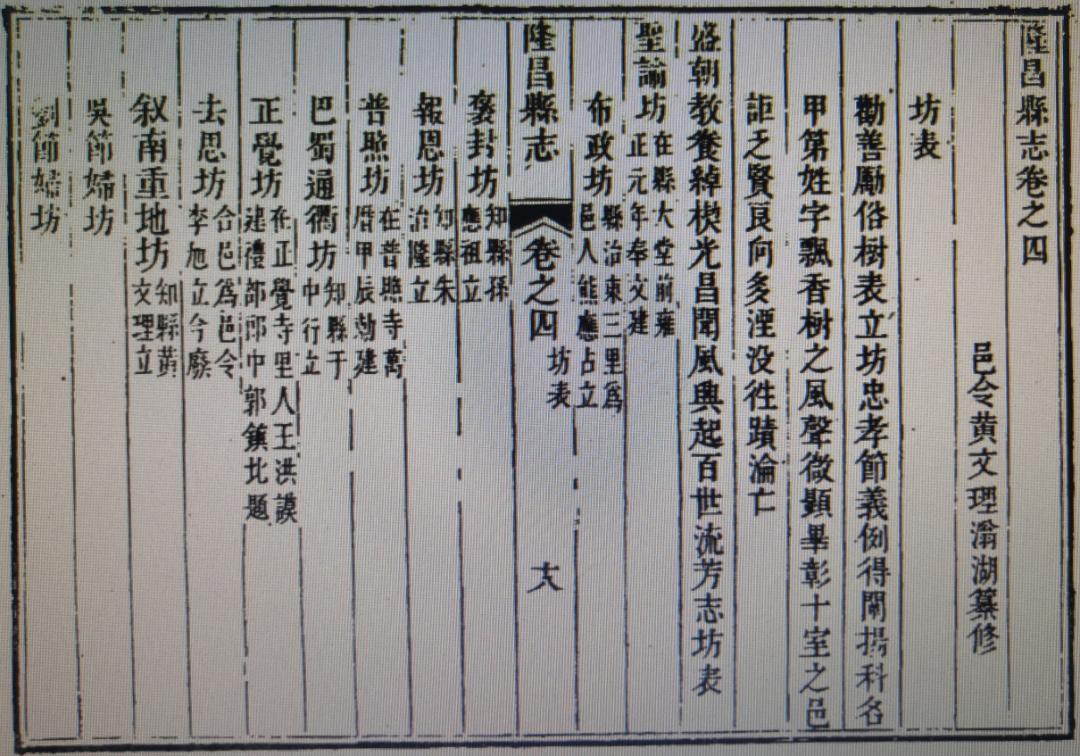 隆昌縣志卷之四
邑令黄文理滃湖纂修
坊表
勸善厲俗樹表立坊忠孝節義例得闡揚科名
甲第姓字飄香樹之風聲微顯畢彰十室之邑
詎乏賢良何多湮没徃蹟淪亡
盛朝教養綽楔光昌聞風興起百世流芳志坊表
聖諭坊在縣大堂前雍
正元年奉文建
布政坊縣治東三里爲
邑人熊應占立
隆昌縣志 卷之四 坊表 十八
褒封坊知縣孫
應祖立
報恩坊知縣朱
治隆立
普照坊在普照寺萬
厯甲辰勅建
巴蜀通衢坊知縣于
中行立
正覺坊在正覺寺里人王洪謨
建禮部郎中郭鎮比題
去思坊合邑爲邑令
李旭立今廢
叙南重地坊知縣黄
文理立
吳節婦坊
劉節婦坊